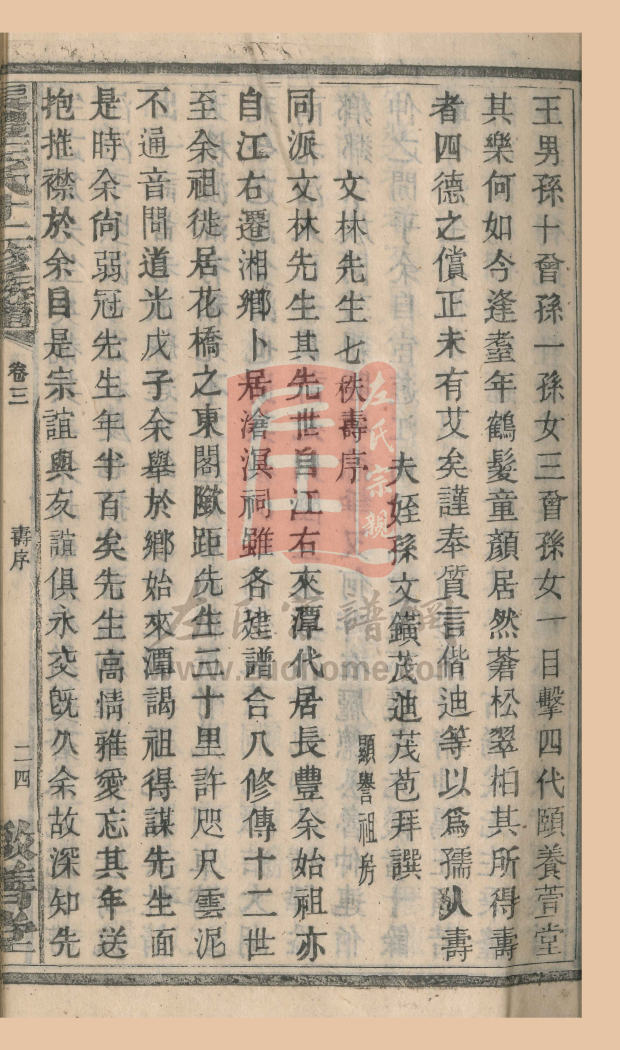 王男孫十曾孫一孫女三曾孫女一目擊四代頤養萱堂
其樂何如今逢耋年鶴髮童顏居然蒼松翠柏其所得壽
者四德之償正未有艾矣謹奉質言偕迪等以爲孺人壽
夫姪孫文鐄茂迪茂苞拜譔
文林先生七秩壽序
顯譽祖房
同派文林先生其先世自江右來潭代居長豊余始祖亦
自江右遷湘鄉卜居滄溟祠雖各建譜合八修傳十二世
至余祖徙居花橋之東閣隞距先生三十里許咫尺雲泥
不通音問道光戊子余舉於鄉始來潭謁祖得謀先生面
是時余尙弱冠先生年半百矣先生高情雅愛忘其年送
抱推襟於余目是宗誼與友誼俱永交旣久余故深知先
十二修族譜
卷三
壽序
二四
左氏宗親
左氏家譜網
www.zuohome.com